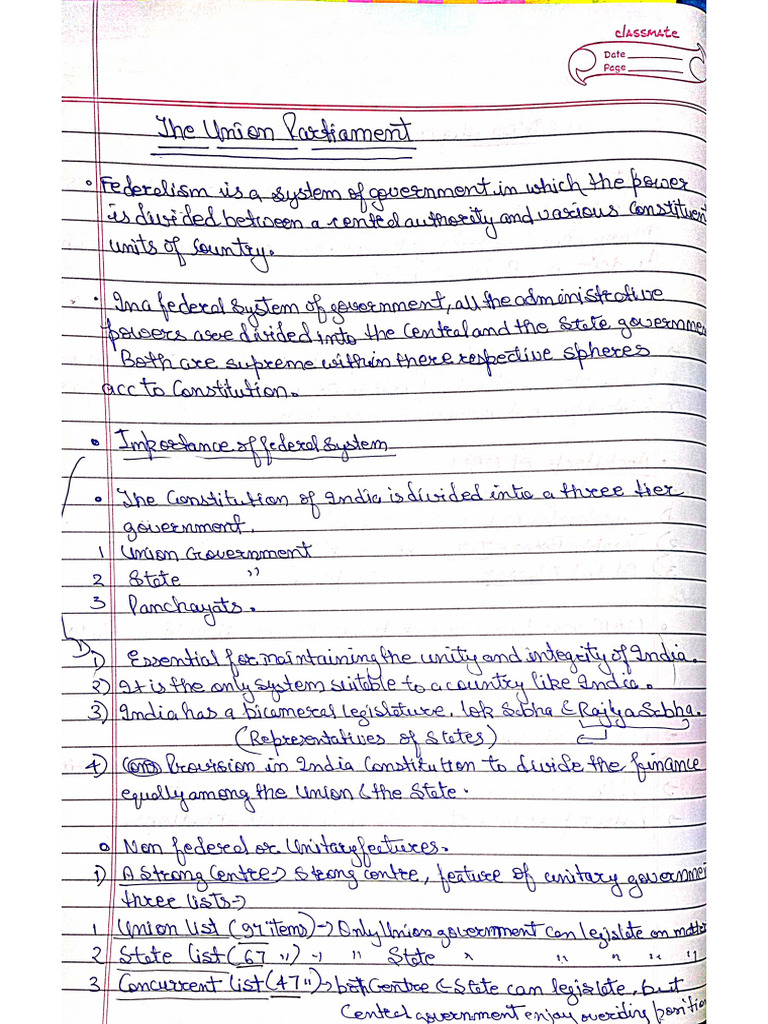 classmate
Date
Page
The Union Parliament
• Federalism is a system of government in which the power
is divided between a central authority and various Constituent
units of Country.
• In a federal system of government, all the administrative
powers are divided into the Central and the State governme
Both are supreme within there respective spheres
acc to Constitution.
• Importance of federal System
• The Constitution of India is divided into a three tier
government.
1 Union Government
2 State "
3 Panchayats.
1) Essential for maintaining the unity and integrity of India.
2) It is the only system suitable to a country like India.
3) India has a bicameral legislature. Lok Sabha & Rajya Sabha.
(Representatives of States)
4) Provision in India Constitution to divide the finance
equally among the Union & the State.
• Non federal or Unitary features.
1) A Strong Centre → Strong centre, feature of unitary governmen
three lists →
1 Union list (97 items) → Only Union government can legislate on matter
2 State list (67 ") → " State " " " "
3 Concurrent list (47 ") → both Centre & State can legislate, but
Central government enjoy overiding position